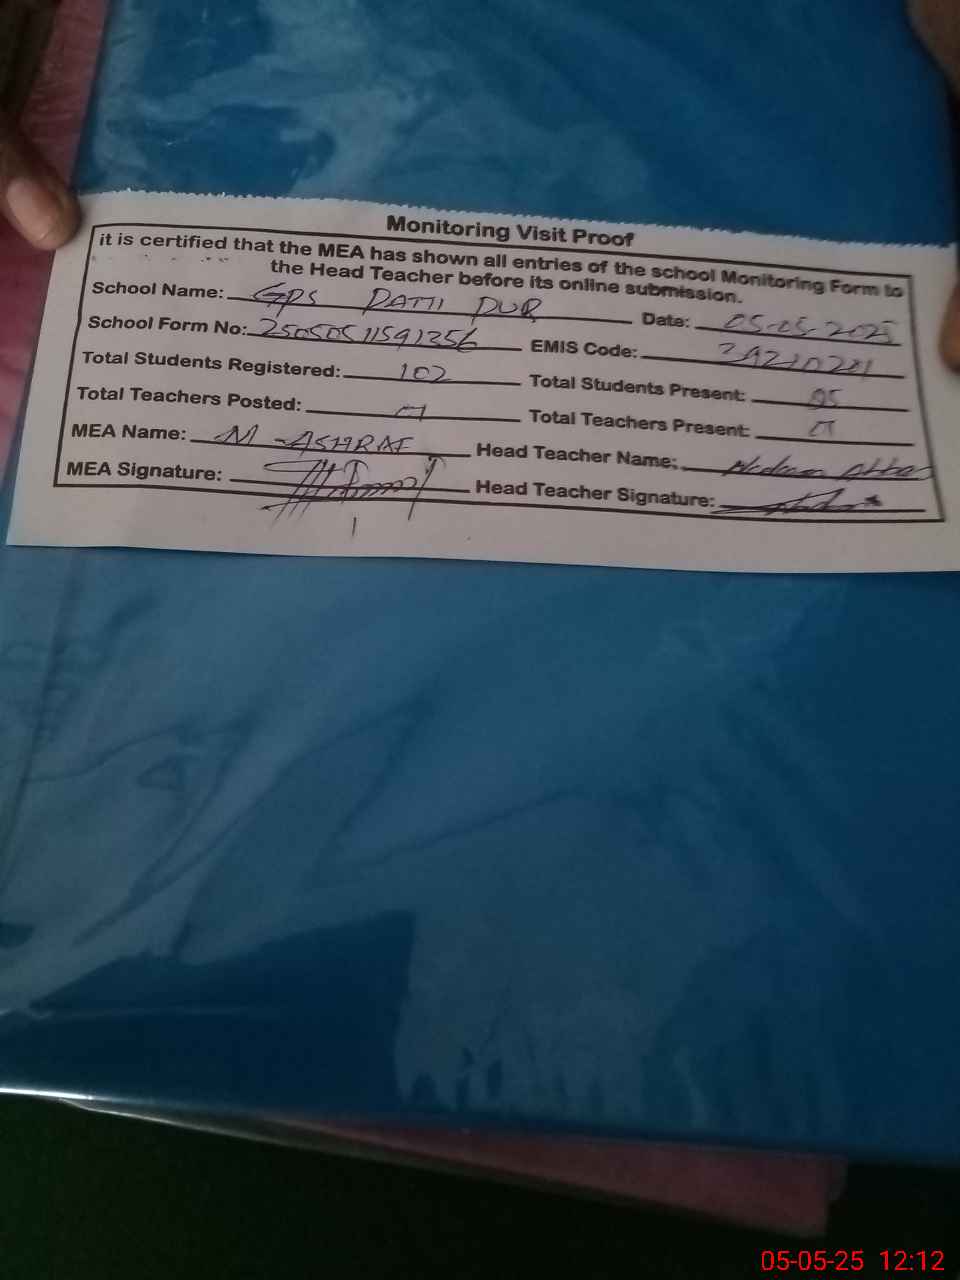 Monitoring Visit Proof
it is certified that the MEA has shown all entries of the school Monitoring Form to
the Head Teacher before its online submission.
School Name: GPS PATTI DUR Date: 05-05-2025
School Form No: 2505051591256 EMIS Code:
Total Students Registered: 102 Total Students Present: 95
Total Teachers Posted: Total Teachers Present:
MEA Name: M-ASHRAF Head Teacher Name:
MEA Signature: Head Teacher Signature:
05-05-25 12:12